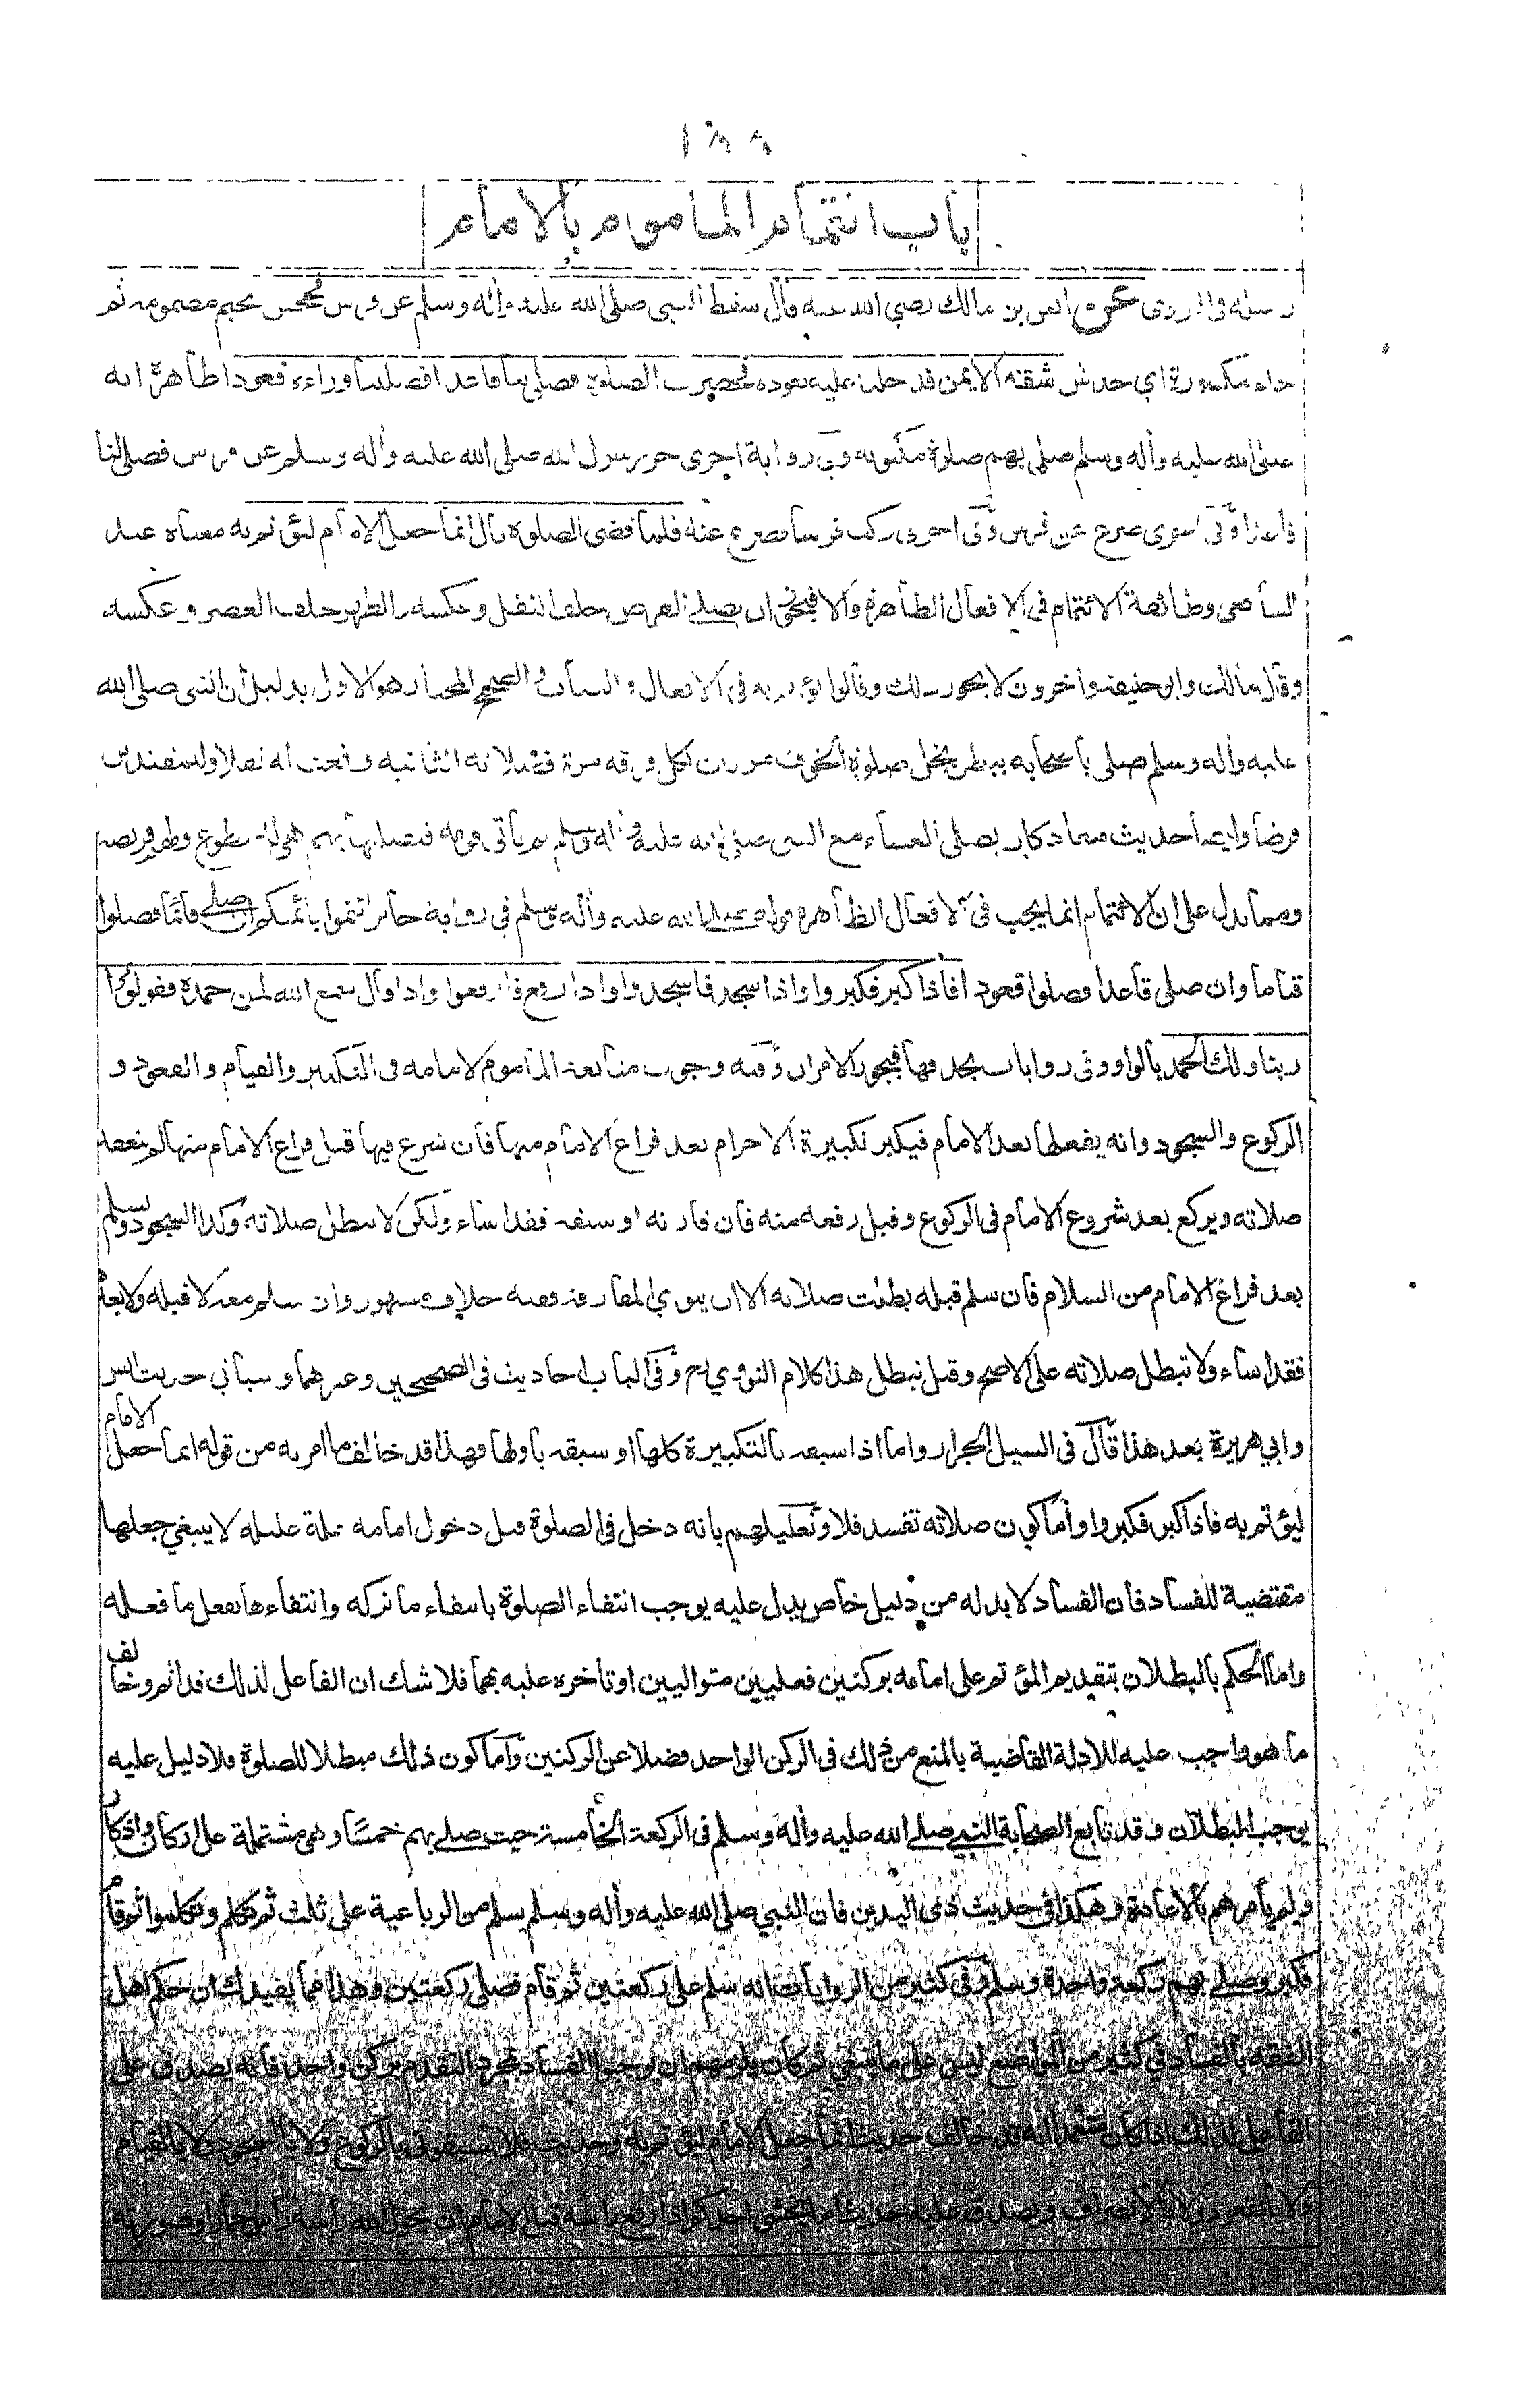 باب ائتمام الماموم بالامام
عن انس بن مالك رضي الله عنه قال سقط النبي صلى الله عليه وأله وسلم عن فرس فجحش بجيم مضمومة ثم
حاء مكسورة اي خدش شقه الايمن فدخلنا عليه نعوده فحضرت الصلوة فصلى بنا قاعدا فصلينا وراءه قعودا ظاهره انه
صلى الله عليه وأله وسلم صلى بهم صلوة مكتوبة وفي رواية اخرى خر رسول الله صلى الله عليه وأله وسلم عن فرس فصلى لنا
قاعدا وفي اخرى صرع عن فرس وفي اخرى ركب فرسا فصرع عنه فلما قضى الصلوة قال انما جعل الامام ليؤتم به معناه عند
الشافعي وطائفة الائتمام في الافعال الظاهرة والا فيجوز ان يصلے الفرض خلف النفل وعكسه والظهر خلف العصر وعكسه
وقال مالك وابو حنيفة واخرون لا يجوز ذلك وقالوا يؤتم به في الافعال والنيات والصحيح المختار هو الاول بدليل ان النبي صلى الله
عليه وأله وسلم صلى باصحابه ببطن نخل صلوة الخوف مرتين لكل فرقة مرة فصلاته الثانية وقعت له نفلا وللمقتدين
فرضا وايضا حديث معاذ كان يصلى العشاء مع النبي صلى الله عليه وأله وسلم ثم يأتي قومه فيصليها بهم هي له تطوع ولهم فريضة
ومما يدل على ان الائتمام انما يجب في الافعال الظاهرة قوله صلى الله عليه وأله وسلم في رواية جابر ائتموا بائمتكم ان صلے قائما فصلوا
قياما وان صلى قاعدا فصلوا قعودا فاذا كبر فكبروا واذا سجد فاسجدوا واذا رفع فارفعوا واذا قال سمع الله لمن حمده فقولوا
ربنا ولك الحمد بالواو وفي روايات بحذفها فيجوز الامران وفيه وجوب متابعة الماموم لامامه في التكبير والقيام والقعود و
الركوع والسجود وانه يفعلها بعد الامام فيكبر تكبيرة الاحرام بعد فراغ الامام منها فان شرع فيها قبل فراغ الامام منها لم تنعقد
صلاته ويركع بعد شروع الامام في الركوع وقبل رفعه منه فان قارنه او سبقه فقد اساء ولكن لا تبطل صلاته وكذا السجود ويسلم
بعد فراغ الامام من السلام فان سلم قبله بطلت صلاته الا ان ينوي المفارقة ففيه خلاف مشهور وان سلم معه لا قبله ولا بعده
فقد اساء ولا تبطل صلاته على الاصح وقيل تبطل هذا كلام النووي رح وفي الباب احاديث في الصحيحين وغيرهما وسيأتي حديث انس
وابي هريرة بعد هذا قال في السيل الجرار واما اذا سبقه بالتكبيرة كلها او سبقه باولها فهذا قد خالف ما امر به من قوله انما جعل الامام
ليؤتم به فاذا كبر فكبروا واما كون صلاته تفسد فلا وتعليلهم بانه دخل في الصلوة قبل دخول امامه علة عليلة لا ينبغي جعلها
مقتضية للفساد فان الفساد لا بد له من دليل خاص يدل عليه يوجب انتفاء الصلوة بانتفاء ما تركه وانتفاءها بفعل ما فعله
واما الحكم بالبطلان بتقديم المؤتم على امامه بركنين فعليين متواليين او تأخره عليه بهما فلا شك ان الفاعل لذلك قد اثم وخالف
ما هو واجب عليه للادلة القاضية بالمنع من ذلك في الركن الواحد فضلا عن الركنين وأما كون ذلك مبطلا للصلوة فلا دليل عليه
يوجب البطلان وقد تابع الصحابة النبي صلے الله عليه وأله وسلم في الركعة الخامسة حيث صلے بهم خمسا وهي مشتملة على اركان واذكار
ولم يأمرهم بالاعادة وهكذا في حديث ذي اليدين فان النبي صلى الله عليه وأله وسلم سلم من الرباعية على ثلث ثم تكلم وتكلموا ثم قام
فكبر وصلے بهم ركعة واحدة وسلم وفي كثير من الروايات انه سلم على ركعتين ثم قام فصلى ركعتين وهذا مما يفيدك ان حكم اهل
الفقه بالفساد في كثير من المواضع ليس على ما ينبغي ثم كان يلزمهم ان يوجبوا الفساد بمجرد التقدم بركن واحد فانه يصدق على
الفاعل لذلك اذا كان متعمدا انه قد خالف حديث انما جعل الامام ليؤتم به وحديث فلا تسبقوني بالركوع ولا بالسجود ولا بالقيام
ولا بالقعود ولا بالانصراف ويصدق عليه حديث اما يخشى احدكم اذا رفع رأسه قبل الامام ان يحول الله رأسه رأس حمار او صورته